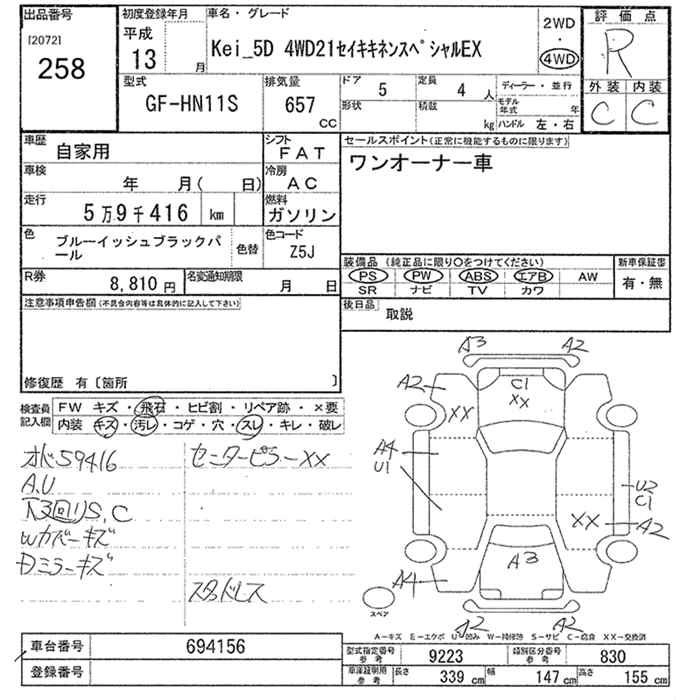 出品番号
[2072]
258
初度登録年月
平成
13 月
車名・グレード
Kei_5D 4WD21セイキキネンスペシャルEX
2WD
・
4WD
評価点
R
外装 内装
C C
型式
GF-HN11S
排気量
657
CC
ドア 5
定員 4 人
形状
積載 kg
ディーラー・並行
モデル年式 年
ハンドル 左・右
車歴
自家用
シフト
FAT
車検
年 月( 日)
冷房
AC
走行
5万9千416 km
燃料
ガソリン
色
ブルーイッシュブラックパール
色替
色コード
Z5J
R券
8,810 円
名変通知期限
月 日
セールスポイント(正常に機能するものに限ります)
ワンオーナー車
装備品 (純正品に限り○をつけてください)
PS PW ABS エアB AW
SR ナビ TV カワ
新車保証書
有・無
後日品
取説
注意事項申告欄(不具合内容等は具体的に記入して下さい)
修復歴 有〔箇所 〕
検査員記入欄
FW キズ・飛石・ヒビ割・リペア跡・×要
内装 キズ・汚レ・コゲ・穴・スレ・キレ・破レ
オド59416
A.U
下3回りS,C
Wカバーキズ
Dミラーキズ
センターピラーXX
スタッドレス
A3
A2
A2
XX
C1
XX
A4
U1
U2
C1
XX
A2
A3
A4
A2
A2
スペア
A−キズ E−エクボ U−凹み W−補修跡 S−サビ C−腐食 XX−交換済
車台番号
694156
登録番号
型式指定番号
参考
9223
類別区分番号
参考
830
車庫証明用
参考
長さ 339 cm
幅 147 cm
高さ 155 cm